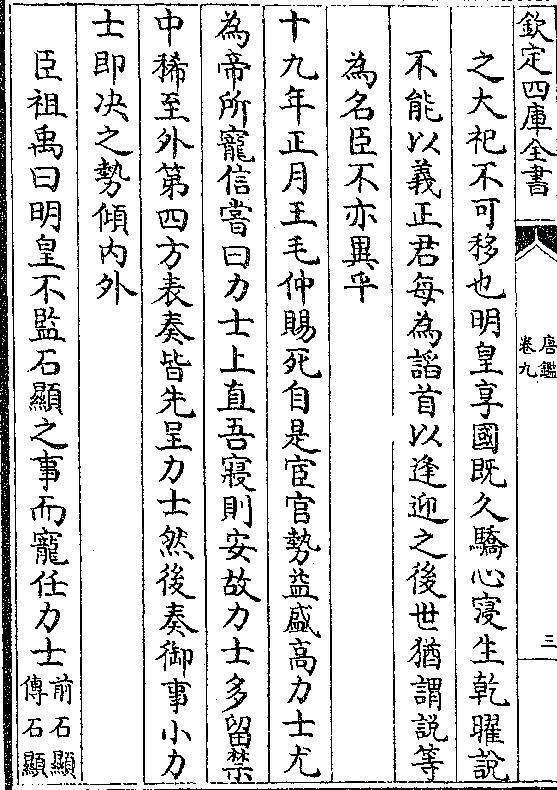 欽定四庫全書
唐鑑
卷九
三
之大祀不可移也明皇享國既久驕心寖生乾曜說
不能以義正君每為諂首以逢迎之後世猶謂説等
為名臣不亦異乎
十九年正月王毛仲賜死自是宦官勢益盛高力士尤
為帝所寵信嘗曰力士上直吾寢則安故力士多留禁
中稀至外第四方表奏皆先呈力士然後奏御事小力
士即决之勢傾内外
臣祖禹曰明皇不監石顯之事而寵任力士前石顯
傳石顯